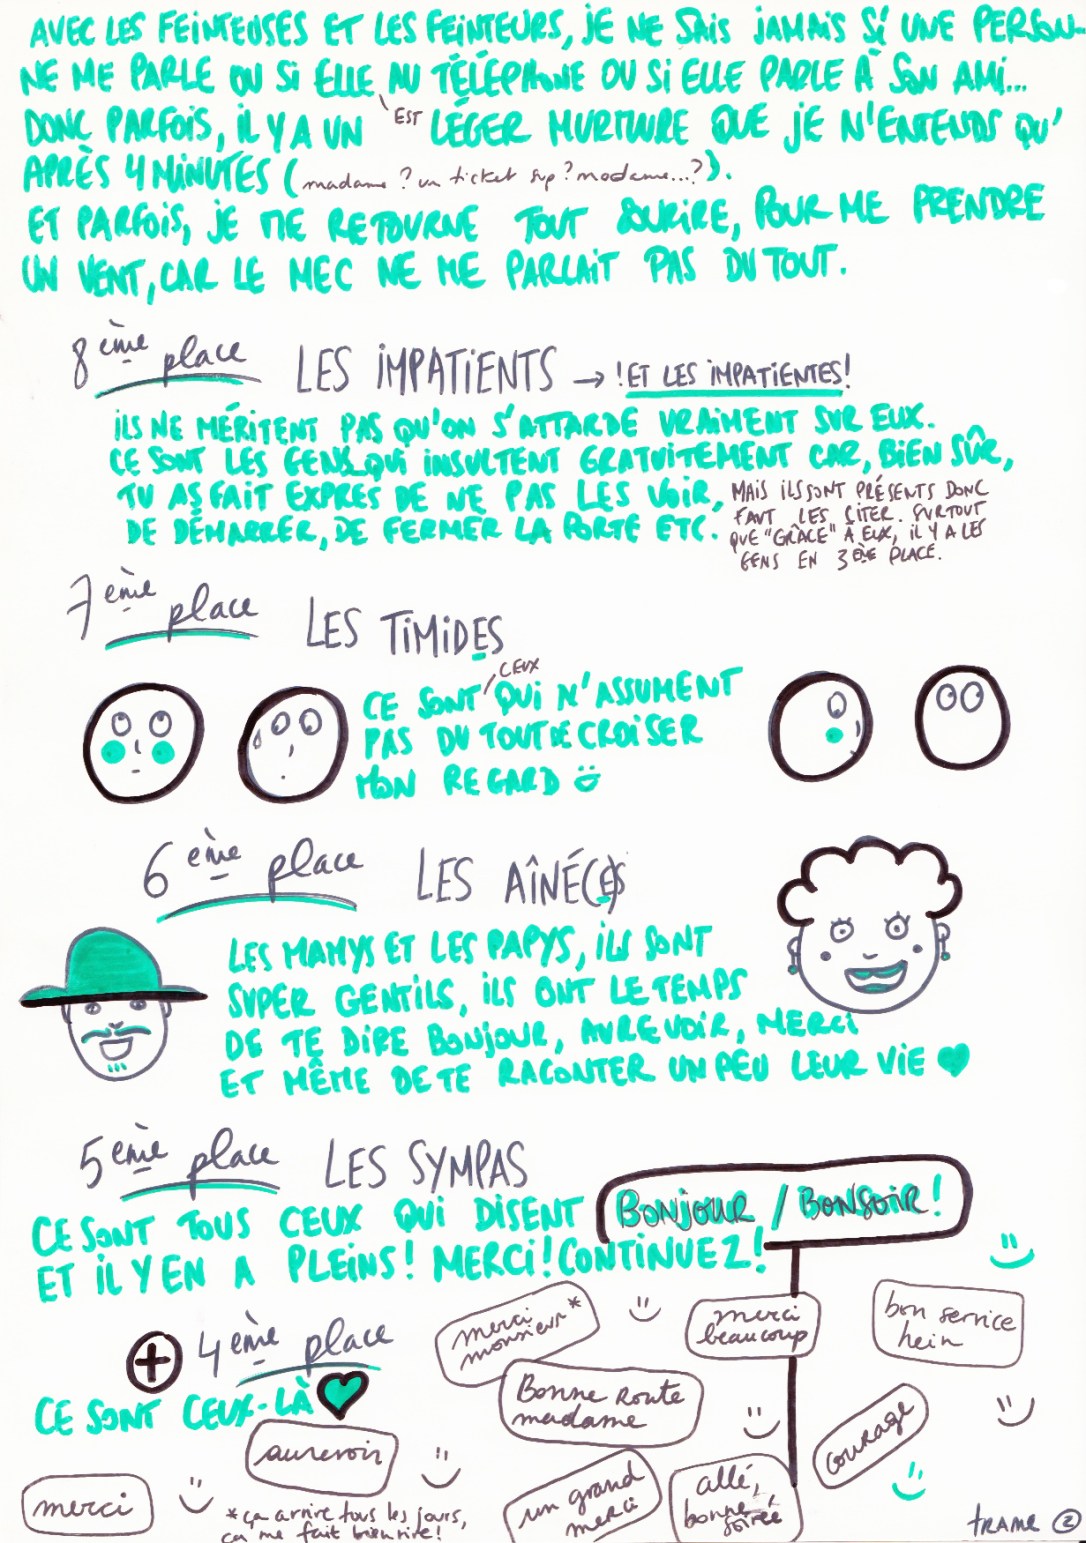 AVEC LES FEINTEUSES ET LES FEINTEURS, JE NE SAIS JAMAIS SI UNE PERSON-
NE ME PARLE OU SI ELLE EST AU TÉLÉPHONE OU SI ELLE PARLE À SON AMI...
DONC PARFOIS, IL Y A UN LÉGER MURMURE QUE JE N'ENTENDS QU'
APRÈS 4 MINUTES (madame ? un ticket svp ? madame...?).
ET PARFOIS, JE ME RETOURNE TOUT SOURIRE, POUR ME PRENDRE
UN VENT, CAR LE MEC NE ME PARLAIT PAS DU TOUT.
8ème place LES IMPATIENTS → !ET LES IMPATIENTES!
ILS NE MÉRITENT PAS QU'ON S'ATTARDE VRAIMENT SUR EUX.
CE SONT LES GENS QUI INSULTENT GRATUITEMENT CAR, BIEN SÛR,
TU AS FAIT EXPRES DE NE PAS LES VOIR,
DE DÉMARRER, DE FERMER LA PORTE ETC.
MAIS ILS SONT PRÉSENTS DONC
FAUT LES CITER. SURTOUT
QUE "GRÂCE" À EUX, IL Y A LES
GENS EN 3ÈME PLACE.
7ème place LES TIMIDES
CE SONT CEUX QUI N'ASSUMENT
PAS DU TOUT DE CROISER
MON REGARD
6ème place LES AÎNÉ(E)S
LES MAMYS ET LES PAPYS, ILS SONT
SUPER GENTILS, ILS ONT LE TEMPS
DE TE DIRE BONJOUR, AUREVOIR, MERCI
ET MÊME DE TE RACONTER UN PEU LEUR VIE ♥
5ème place LES SYMPAS
CE SONT TOUS CEUX QUI DISENT BONJOUR / BONSOIR!
ET IL Y EN A PLEINS! MERCI! CONTINUEZ!
+ 4ème place
CE SONT CEUX-LÀ
merci
monsieur*
merci
beaucoup
bon service
hein
Bonne route
madame
courage
aurevoir
merci
un grand
merci
allé,
bonne
soirée
*ça arrive tous les jours,
ça me fait bien rire!
TRAME 2